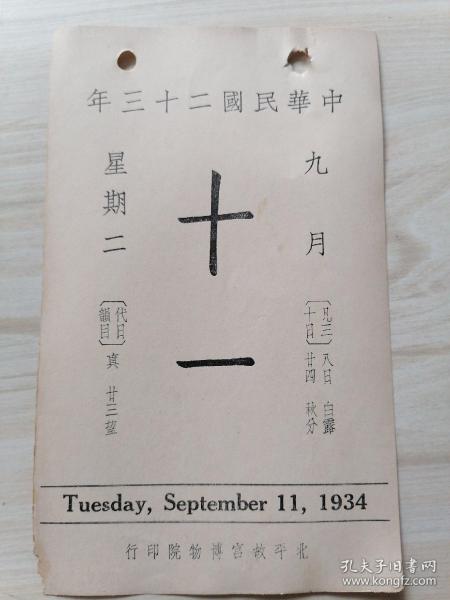 中華民國二十三年
九月
十一
星期二
〔凡三十日〕
八日 白露
廿四 秋分
〔代日韻目〕
真 廿三望
Tuesday, September 11, 1934
北平故宮博物院印行
孔夫子旧书网
book.kongfz.com